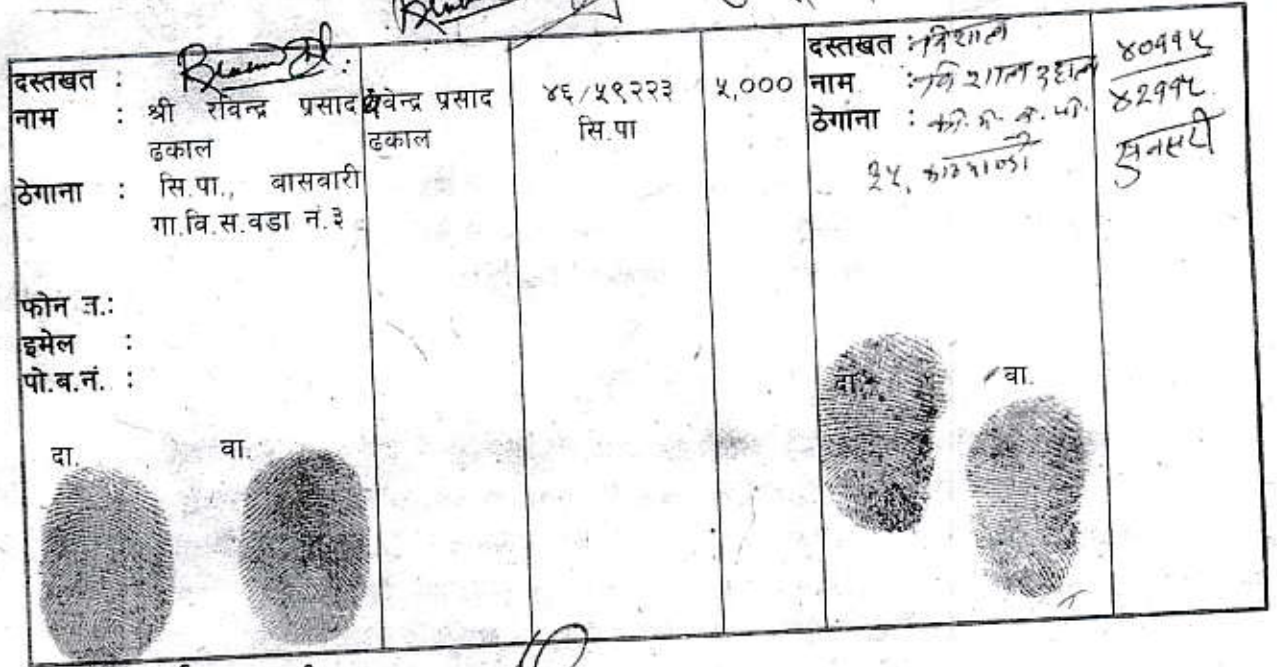 दस्तखत :
नाम : श्री रविन्द्र प्रसाद
ढकाल
ठेगाना : सि.पा., बासबारी
गा.वि.स.वडा नं.३
फोन न.:
इमेल :
पो.ब.नं. :
दा. वा.
देवेन्द्र प्रसाद
ढकाल
४६/५९२२३
सि.पा
५,०००
दस्तखत : विशाल
नाम : विशाल दहाल
ठेगाना : का.जि.का.म.न.पा.
३५, काठमाण्डौ
दा. वा.
४०११५
४२११५
सुनसरी